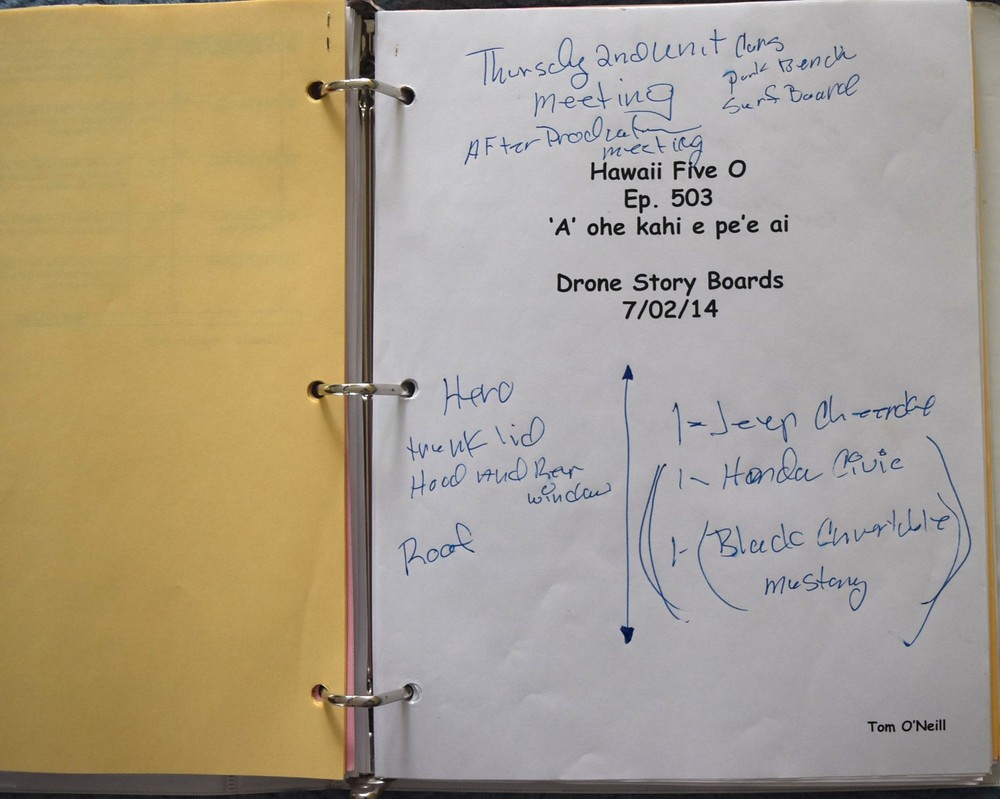 Thursday 2nd unit
meeting
Park Bench
Surf Board
After Production
meeting
Hawaii Five O
Ep. 503
‘A’ ohe kahi e pe’e ai
Drone Story Boards
7/02/14
Hero
trunk lid
Hood and Rear
window
Roof
1- Jeep Cherokee
1- Honda Civic
1- (Black Convertable
mustang
Tom O’Neill